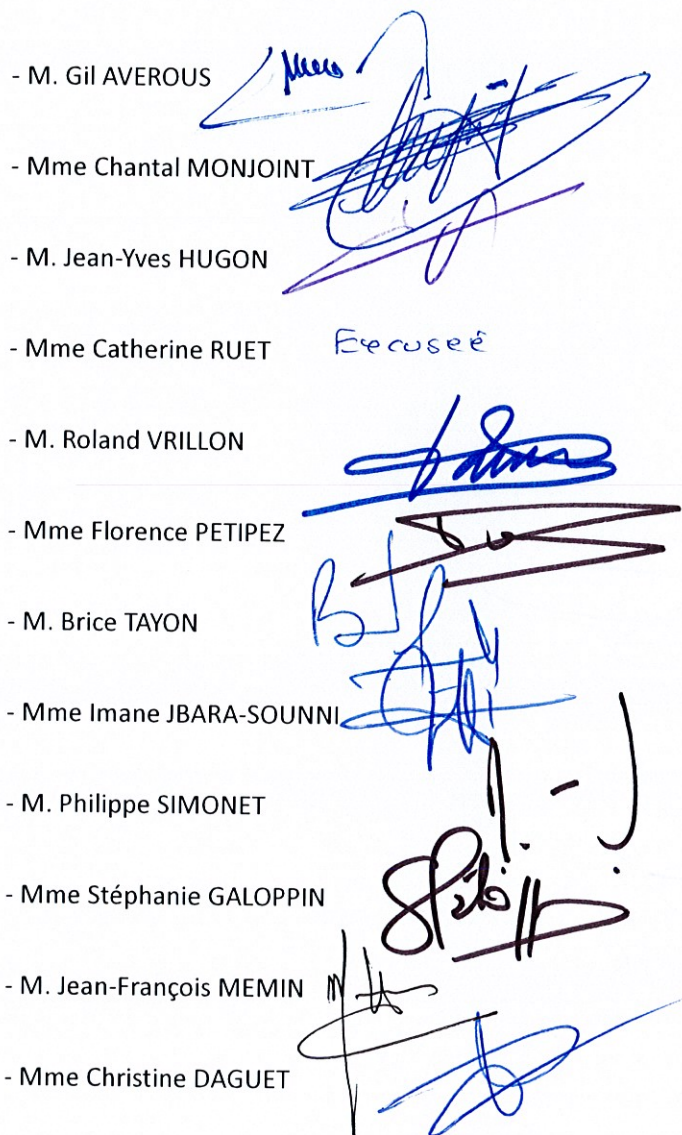 - M. Gil AVEROUS
- Mme Chantal MONJOINT
- M. Jean-Yves HUGON
- Mme Catherine RUET Excuseé
- M. Roland VRILLON
- Mme Florence PETIPEZ
- M. Brice TAYON
- Mme Imane JBARA-SOUNNI
- M. Philippe SIMONET
- Mme Stéphanie GALOPPIN
- M. Jean-François MEMIN
- Mme Christine DAGUET